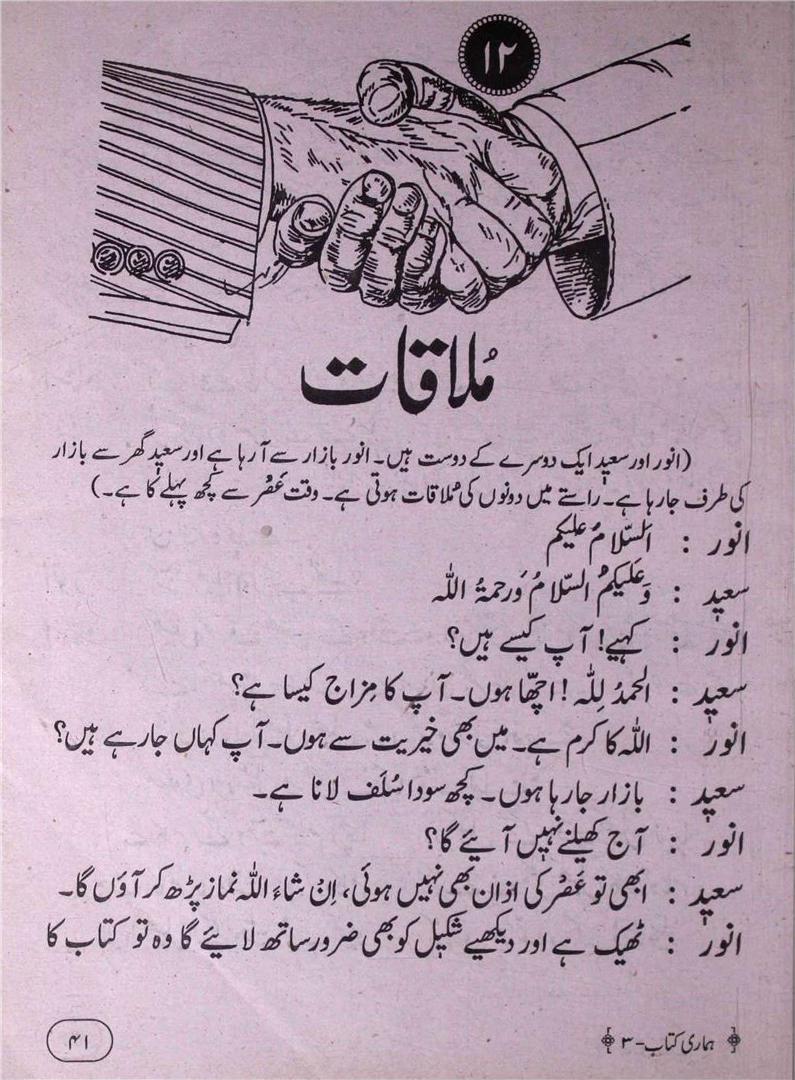 ۱۲
مُلاقات
(انور اور سعید ایک دوسرے کے دوست ہیں۔ انور بازار سے آرہا ہے اور سعید گھر سے بازار
کی طرف جارہا ہے۔ راستے میں دونوں کی مُلاقات ہوتی ہے۔ وقت عَصْر سے کچھ پہلے کا ہے۔)
انور : اَلسّلامُ علیکم
سعید : وَعَلیکمُ السّلامُ وَرحمۃُ اللّٰہ
انور : کہیے! آپ کیسے ہیں؟
سعید : الحمدُ لِلّٰہ! اچھّا ہوں۔ آپ کا مِزاج کیسا ہے؟
انور : اللّٰہ کا کرم ہے۔ میں بھی خیریت سے ہوں۔ آپ کہاں جارہے ہیں؟
سعید : بازار جارہا ہوں۔ کچھ سودا سُلَف لانا ہے۔
انور : آج کھیلنے نہیں آیئے گا؟
سعید : ابھی تو عَصْر کی اذان بھی نہیں ہوئی، اِنْ شاءَ اللّٰہ نماز پڑھ کر آؤں گا۔
انور : ٹھیک ہے اور دیکھیے شکیل کو بھی ضرور ساتھ لایئے گا وہ تو کتاب کا
ہماری کتاب-۳
۴۱